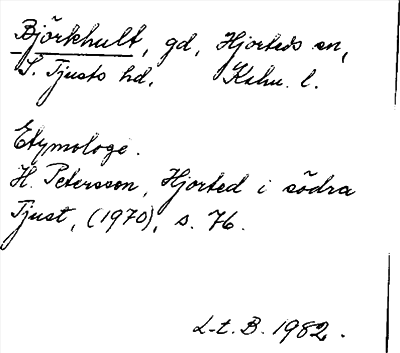 Björkhult, gd, Hjorteds sn,
S. Tjusts hd, Kalm. l.
Etymologi.
H. Petersson, Hjorted i södra
Tjust, (1970), s. 76.
L-t. B. 1982.